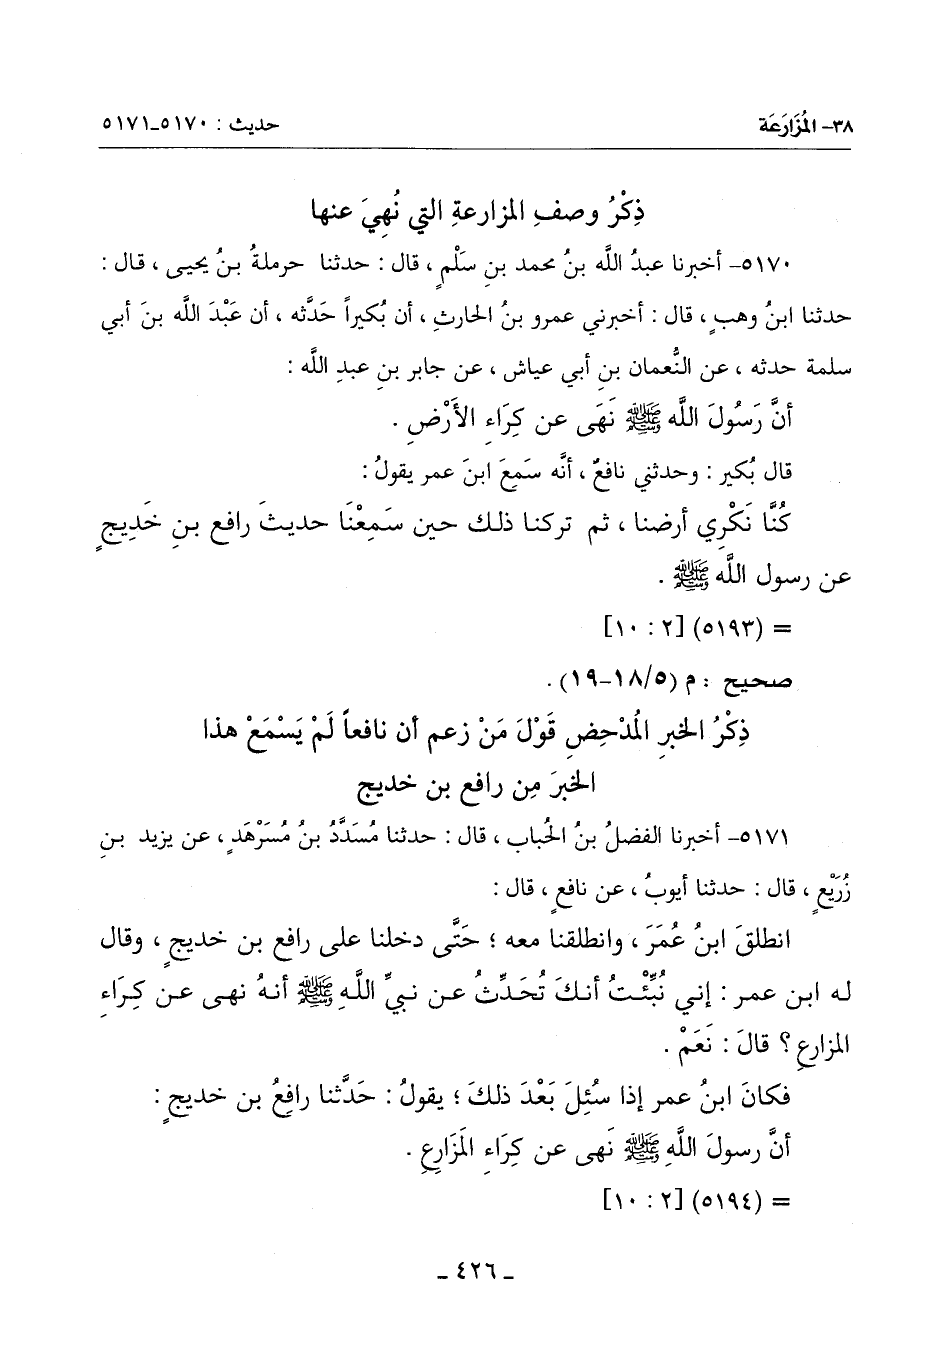 ٣٨- المُزَارَعَة حديث : ٥١٧٠-٥١٧١
ذِكْرُ وصفِ المزارعةِ التي نُهِيَ عنها
٥١٧٠- أخبرنا عبدُ اللَّه بنُ محمد بنِ سَلْمٍ ، قال : حدثنا حرملةُ بنُ يحيى ، قال :
حدثنا ابنُ وهبٍ ، قال : أخبرني عمرو بنُ الحارثِ ، أن بُكيراً حَدَّثه ، أن عَبْدَ اللَّه بنَ أبي
سلمة حدثه ، عن النُّعمان بنِ أبي عياش ، عن جابر بنِ عبدِ اللَّه :
أنَّ رَسُولَ اللَّه ﷺ نَهَى عن كِرَاءِ الأَرْضِ .
قال بُكير : وحدثني نافعٌ ، أنَّه سَمِعَ ابنَ عمر يقولُ :
كُنَّا نَكْرِي أرضنا ، ثم تركنا ذلك حين سَمِعْنَا حديثَ رافع بنِ خَدِيجٍ
عن رسول اللَّه ﷺ .
= (٥١٩٣) [٢ : ١٠]
صحيح : م (١٨/٥-١٩) .
ذِكْرُ الخبرِ المُدْحِضِ قَوْلَ مَنْ زعم أن نافعاً لَمْ يَسْمَعْ هذا
الخبرَ مِن رافع بن خديج
٥١٧١- أخبرنا الفضلُ بنُ الحُباب ، قال : حدثنا مُسَدَّدُ بنُ مُسَرْهَدٍ ، عن يزيد بنِ
زُرَيْعٍ ، قال : حدثنا أيوبُ ، عن نافعٍ ، قال :
انطلقَ ابنُ عُمَرَ ، وانطلقنا معه ؛ حَتَّى دخلنا على رافع بن خديجٍ ، وقال
له ابن عمر : إني نُبِّئْتُ أنكَ تُحَدِّثُ عن نبيِّ اللَّهِ ﷺ أنهُ نهى عن كِرَاءِ
المزارعِ ؟ قالَ : نَعَمْ .
فكانَ ابنُ عمر إذا سُئِلَ بَعْدَ ذلكَ ؛ يقولُ : حَدَّثنا رافعُ بن خديجٍ :
أنَّ رسولَ اللَّهِ ﷺ نَهى عن كِرَاءِ المَزَارِعِ .
= (٥١٩٤) [٢ : ١٠]
- ٤٢٦ -